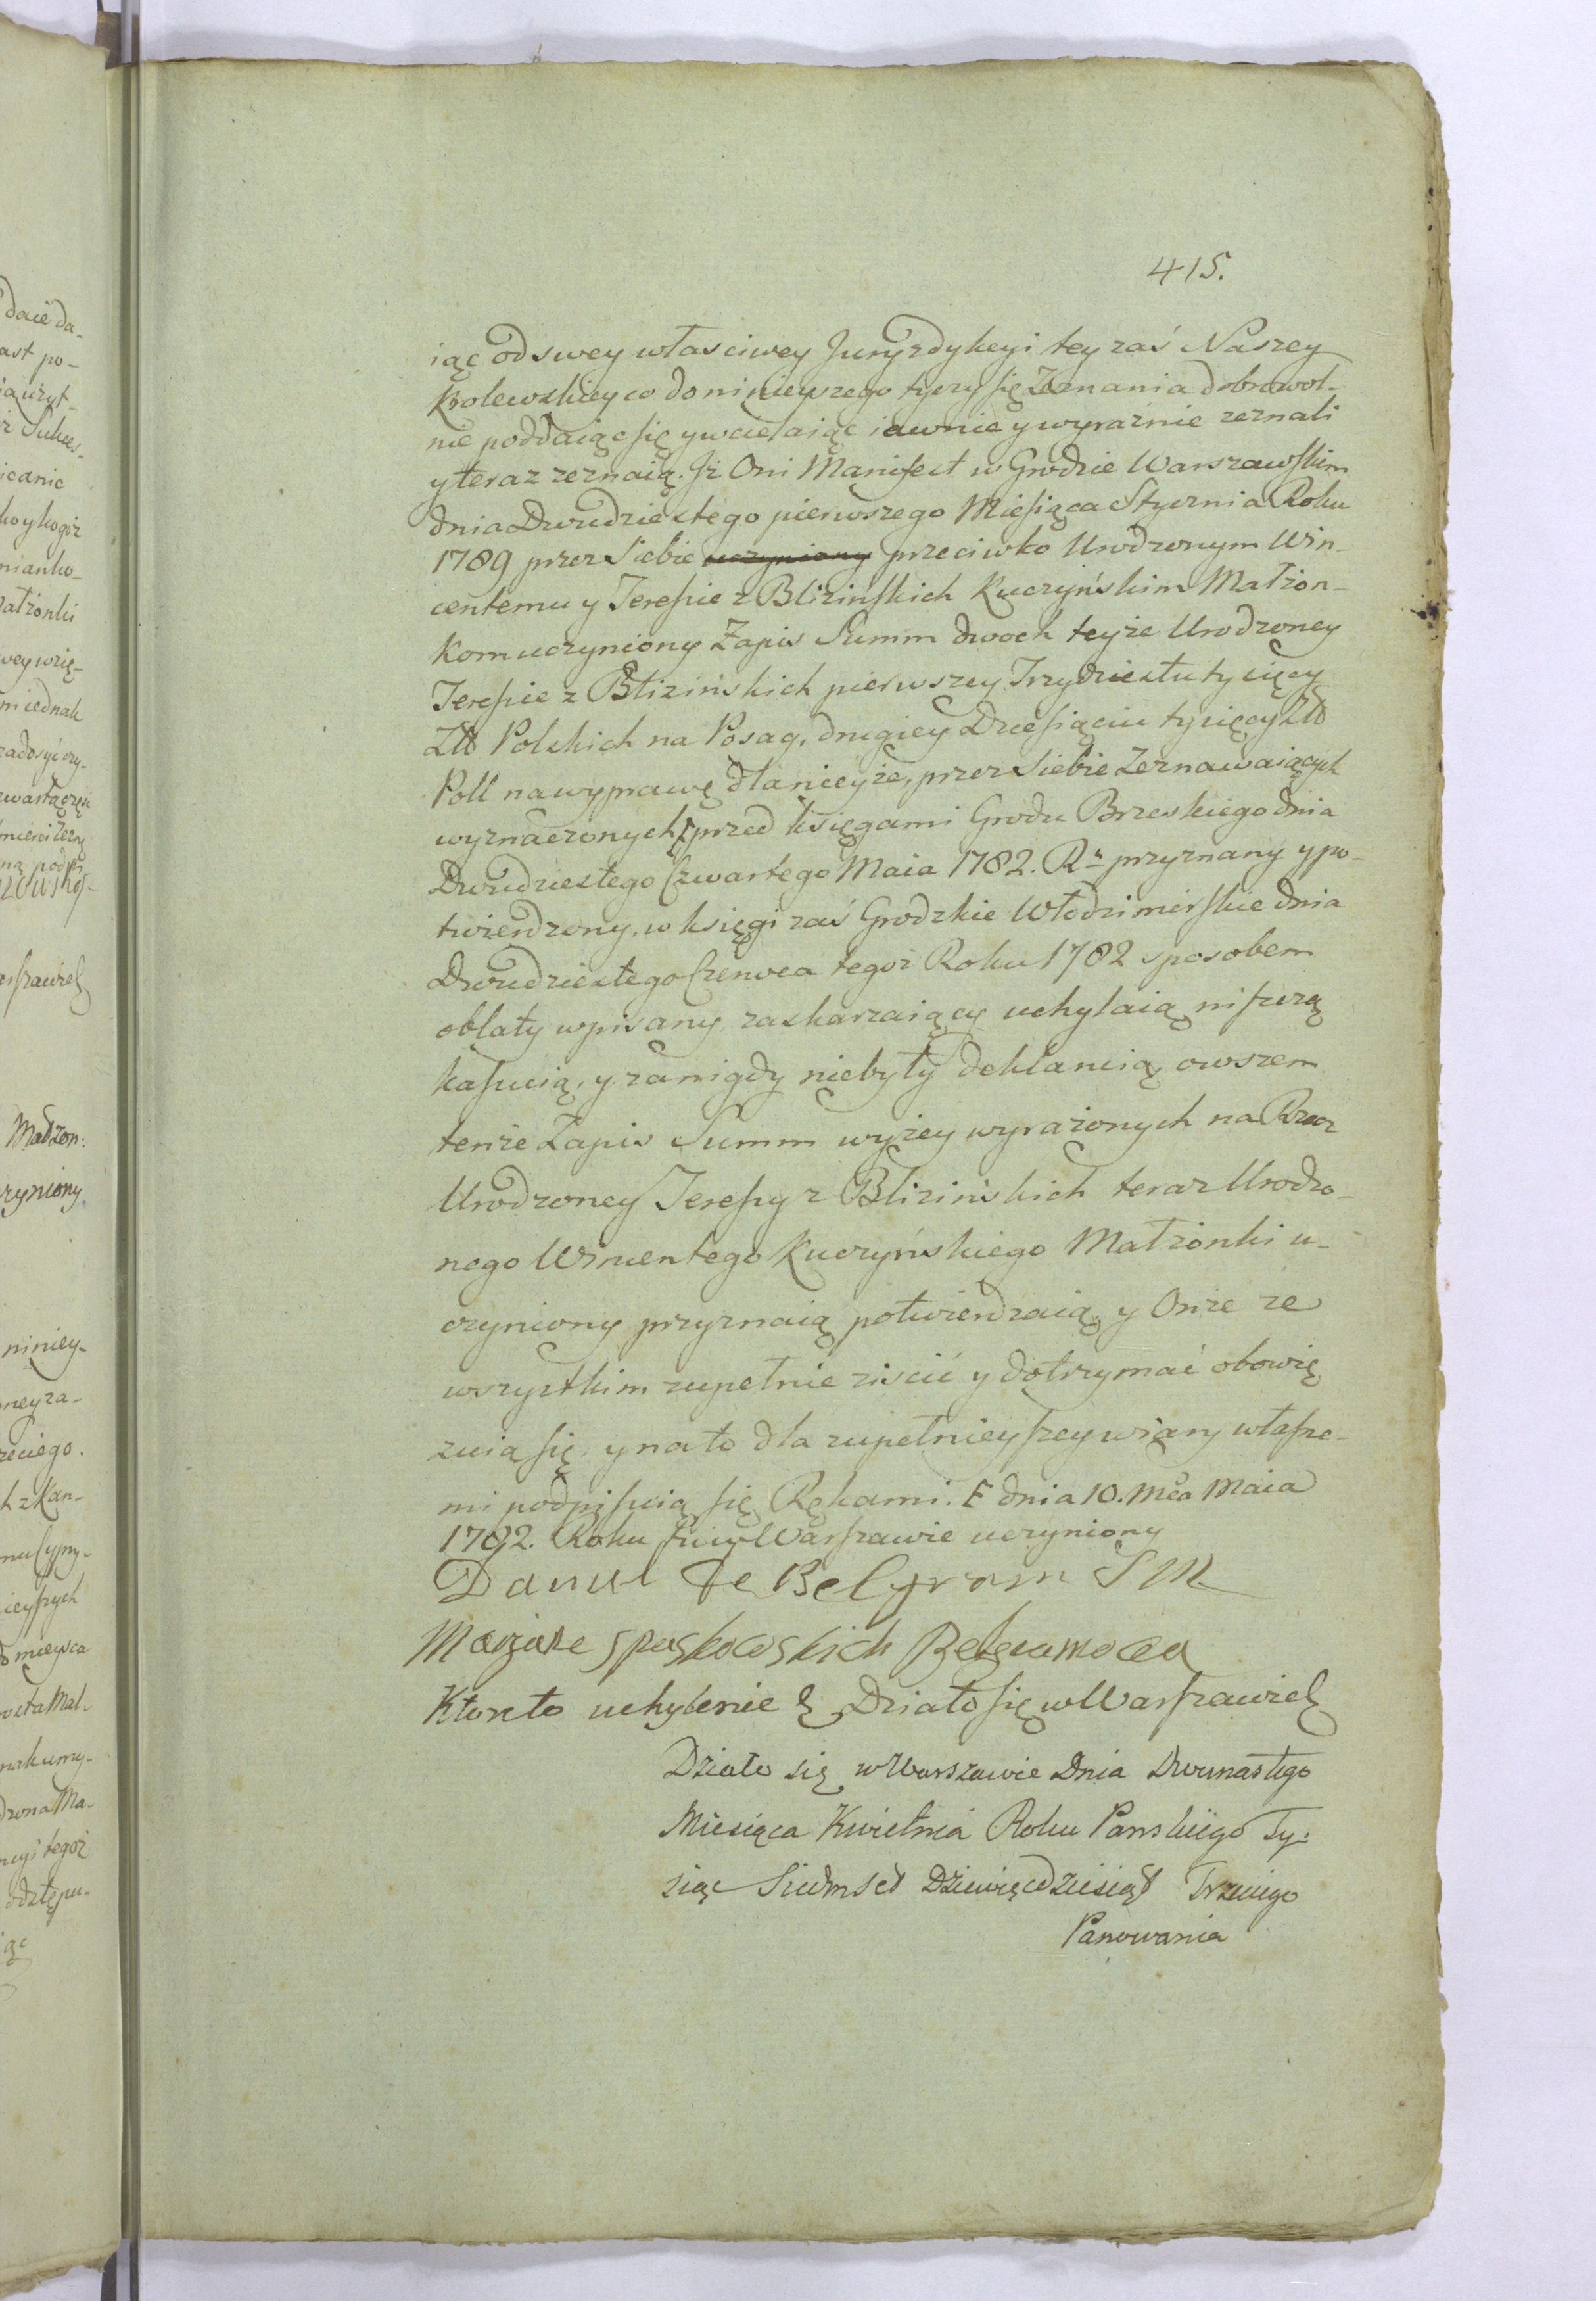 415.
iąc od swey własciwey Juryzdykcyi tey zaś Naszey
Krolewskiey co do ninieyszego tyczy się Zeznania dobrowol-
nie poddaiąc się y wcielaiąc iawnie y wyraznie zeznali
y teraz zeznaią. Jż Oni Manifest w Grodzie Warszawskim
dnia Dwudziestego pierwszego Miesiąca Stycznia Roku
1789 przez Siebie uczyniony przeciwko Urodzonym Win-
centemu y Teressie z Blizinskich Kuczyńskim Małżon-
kom uczyniony Zapis Summ dwoch teyże Urodzoney
Teressie z Blizińskich pierwszey Trzydziestu tysięcy
Złł Polskich na Posag, drugiey Dziesiąciu tysięcy Złł
Poll na wyprawę dla nieyże, przez Siebie Zeznawaiących
wyznaczonych przed księgami Grodu Brzeskiego dnia
Dwudziestego Czwartego Maia 1782. Rꝰ przyznany y po-
twierdzony, w księgi zaś Grodzkie Włodzimirskie dnia
Dwudziestego Czerwca tegoż Roku 1782 sposobem
oblaty wpisany zaskarzaiący uchylaią niszczą
kassuią, y za nigdy niebyły deklaruią, owszem
tenże Zapis Summ wyżey wyrażonych na Rzecz
Urodzoney Teressy z Blizińskich teraz Urodzo-
nego Wincentego Kuczyńskiego Małżonki u-
czyniony przyznaią potwierdzaią, y Onże ze
wszystkim zupełnie ziścić y dotrzymać obowię
zuią się, y na to dla zupełnieyszey wiary własne-
mi podpisuią się Rękami. E dnia 10. Mca Maia
1792. Roku tu w Warszawie uczyniony
Daniel de Belgram S M
Maryana z Puskowskich Belgramowa
Ktoreto uchylenie &c Działo się w Warszawie &c
Działo się w Warszawie Dnia Dwunastego
Miesiąca Kwietnia Roku Panskiego Ty-
siąc Siedmset Dziewięcdziesiąt Trzeciego
Panowania
daie da-
ast po-
ia użyt-
z Sukces-
icanie
ko y kogoż
mianko-
ałżonki
wey wzię-
ni iednak
zadosyć czy-
mierci
Małzon:
czyniony
niniey-
ney za-
zeciego.
h z Kan-
ieyszych
mieysca
Mał-
nak umy-
dzona Ma-
cyi tegoż
odstępu-
iąc